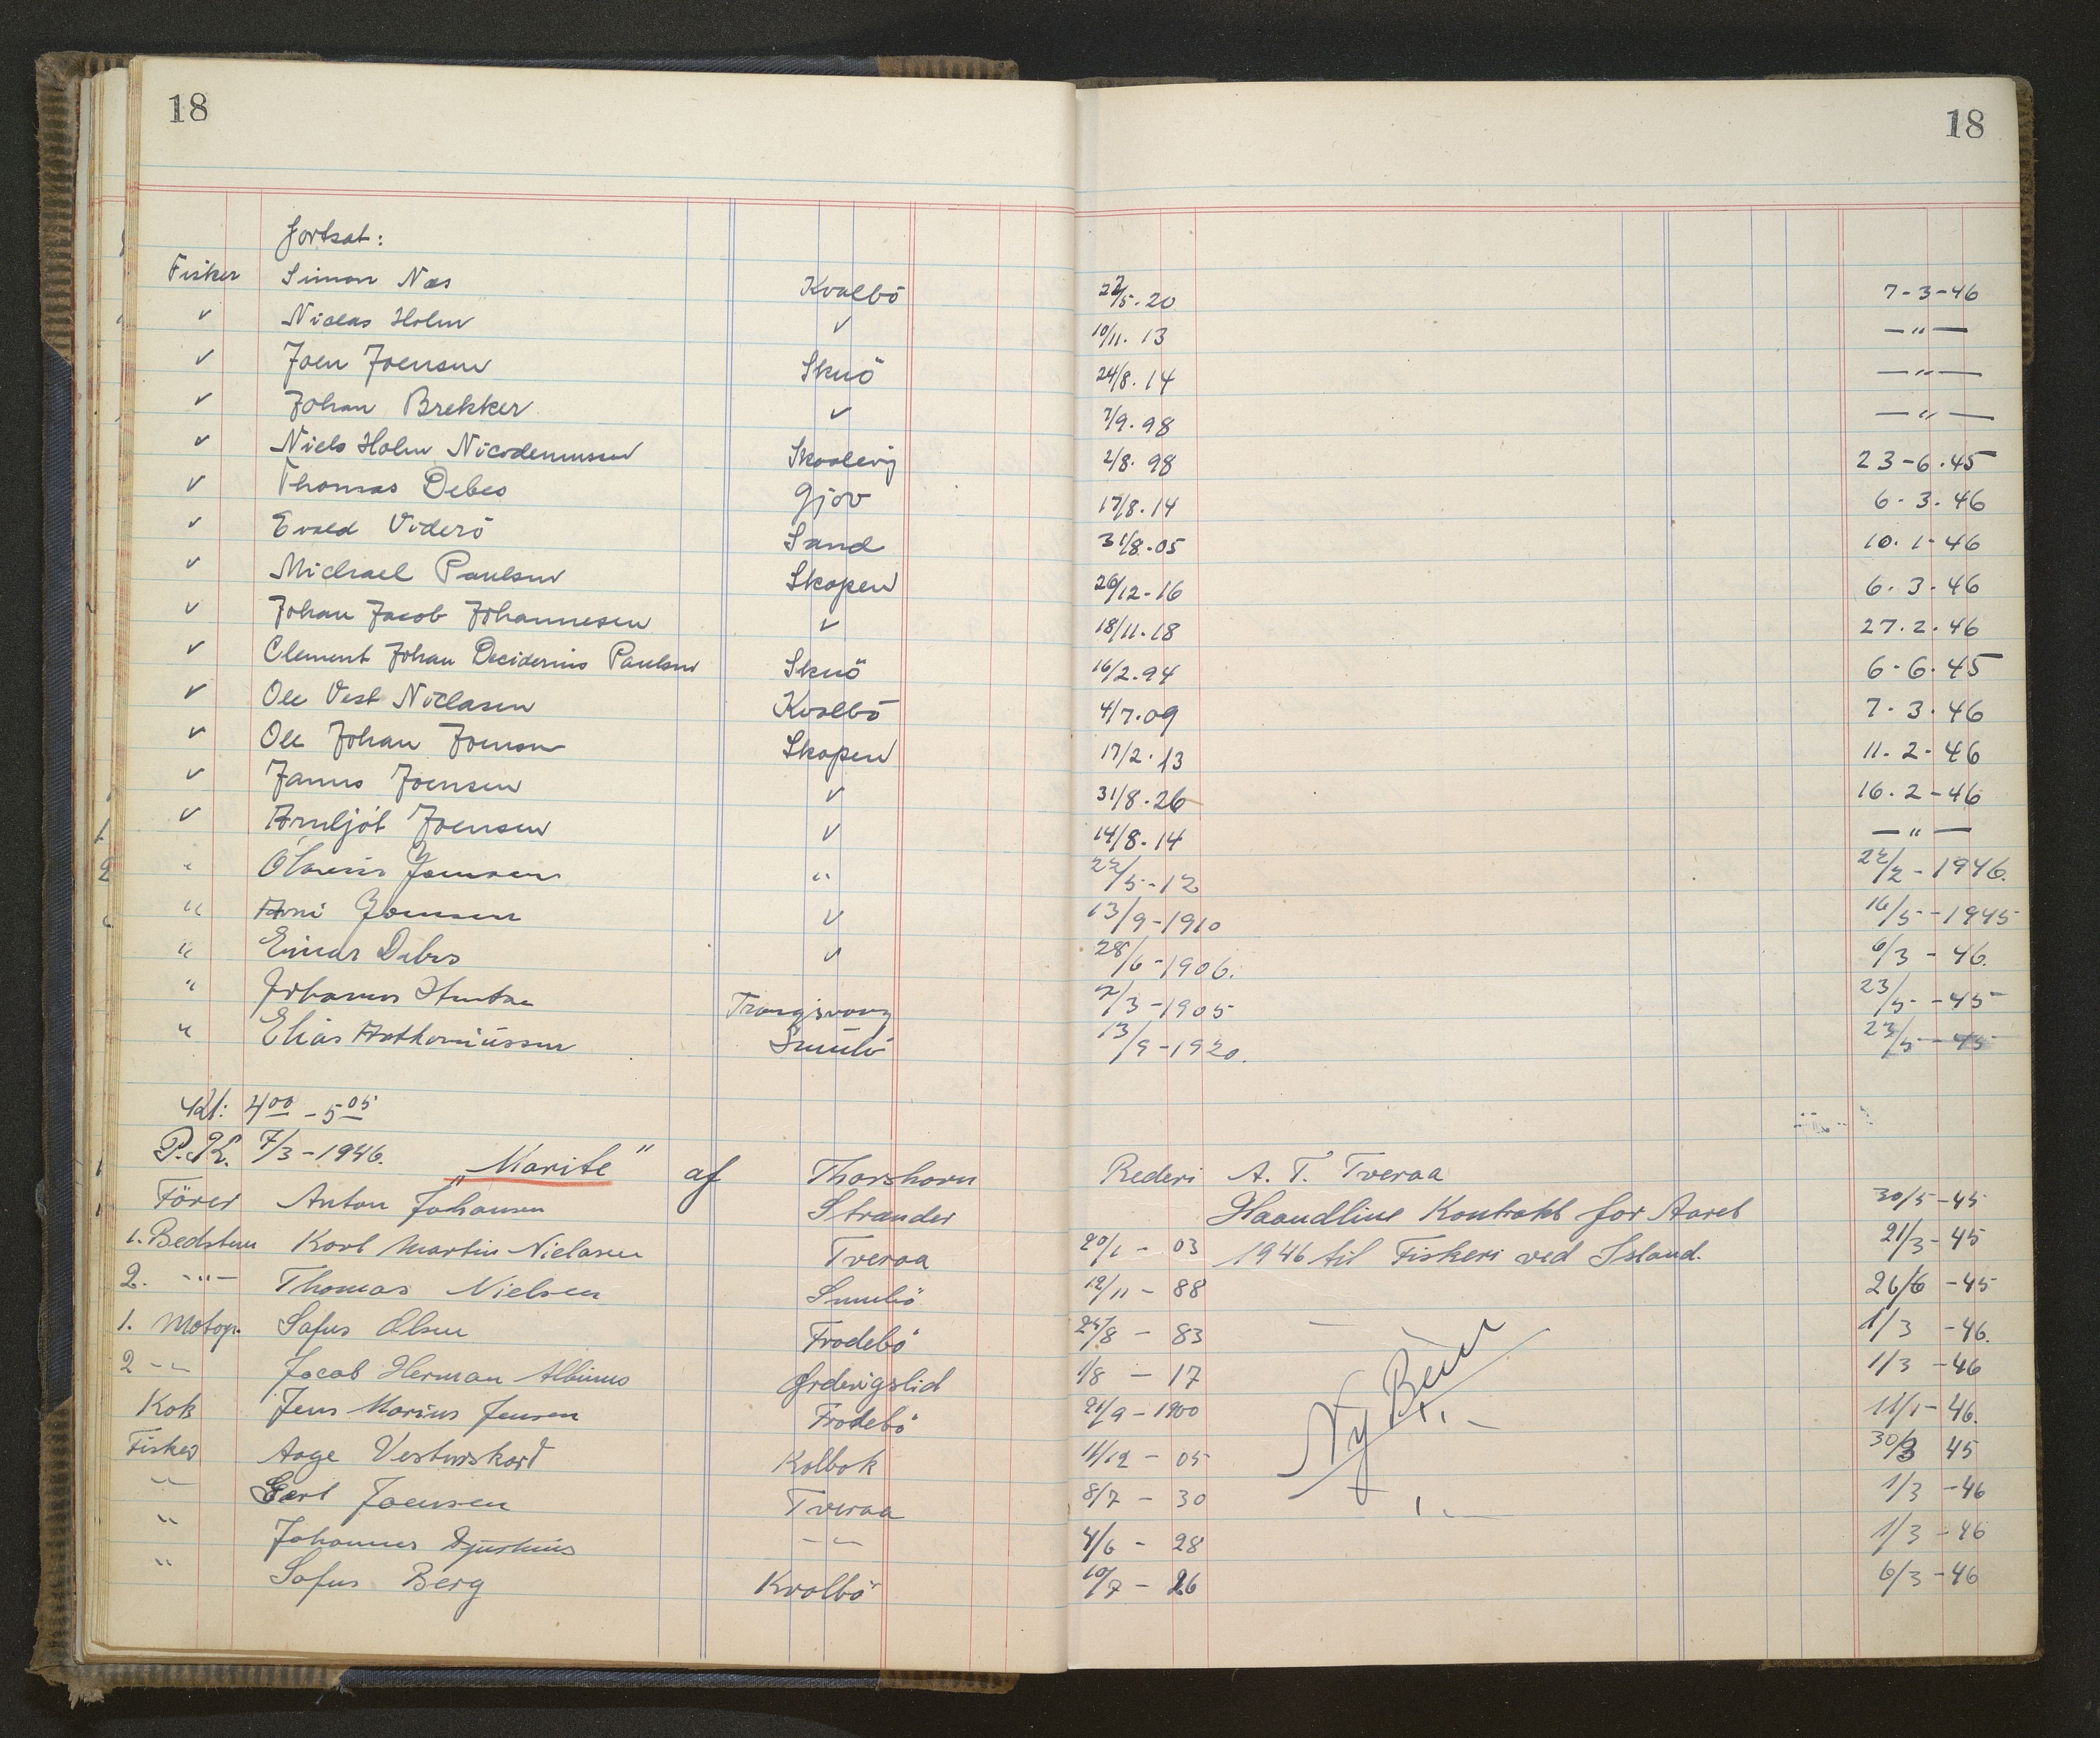 18 18
fortsat:
Fisker Simon Næs Kvalbö 22/5.20 7-3-46
v Niclas Holm v 10/11.13 —"—
v Joen Joensen Skuö 24/8.14 —"—
v Johan Brekker v 7/9.98 —"—
v Niels Holm Nicodemussen Skaalevig 2/8.98 23-6.45
v Thomas Debes Gjov 17/8.14 6.3.46
v Evald Viderö Sand 31/8.05 10.1-46
v Michael Paulsen Skopen 26/12-16 6.3.46
v Johan Jacob Johannesen v 18/11.18 27.2.46
v Clement Johan Deciderius Paulsen Skuö 16/2.94 6.6.45
v Ole Vest Niclasen Kvalbö 4/7.09 7.3.46
v Ole Johan Joensen Skopen 17/2.13 11.2-46
v Janus Joensen v 31/8.26 16.2-46
v Arnljót Joensen v 14/8.14 —"—
" Olavur Joensen " 22/5-12 22/2-1946.
" Arni Joensen v 13/9-1910 16/5-1945
" Einar Debes v 28/6-1906. 6/3-46.
" Johannes Trangisvaag 2/3-1905 23/5-45
" Elias Anthoniussen Sumbö 13/9-1920. 23/5-45
Kl: 400 - 5 05
P.K. 7/3-1946. "Marite" af Thorshavn Rederi A. T. Tveraa
Förer Anton Johansen Strander Haandline Kontrakt for Aaret 30/5-45
1. Bedstm Karl Martin Niclasen Tveraa 20/1 - 03 1946 til Fiskeri ved Island. 21/3-45
2. -"- Thomas Nielsen Sumbö 12/11 - 88 26/6 -45
1. Motorp. Sofus Olsen Frodebö 25/8 - 83 1/3 -46.
2 -"- Jacob Herman Albinus Ördevigslid 1/8 - 17 1/3 -46
Kok Jens Marius Jensen Frodebö 21/9-1900 11/1-46.
Ny Bem
Fisker Aage Vesturskard Kolbak 11/12 - 05 30/3 45
" Carl Joensen Tveraa 8/7 - 30 1/3 -46
" Johannes Djurhuus -"- 4/6 - 28 1/3 -46
" Sofus Berg Kvalbö 10/7 - 26 6/3-46